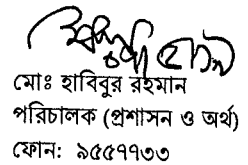 মোঃ হাবিবুর রহমান
পরিচালক (প্রশাসন ও অর্থ)
ফোন: ৯৫৫৭৭৩৩